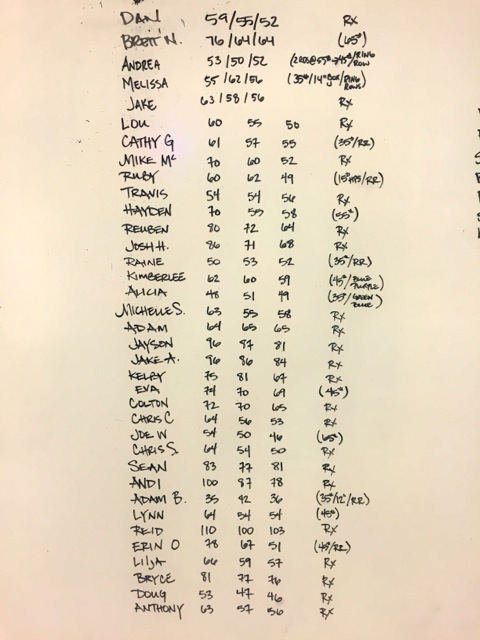 DAN 59/55/52 Rx
BRETT N. 76/64/64 (65#)
ANDREA 53/50/52 (2RDS@55# →45#/RING ROW
MELISSA 55/62/56 (35#/14" BOX/RING ROWS)
JAKE 63/58/56 Rx
LOU 60 55 50 Rx
CATHY G 61 57 55 (35#/RR)
MIKE Mc 70 60 52 Rx
RUBY 60 62 49 (15#/RR)
TRAVIS 54 54 56 Rx
HAYDEN 70 55 58 (55#)
REUBEN 80 72 64 Rx
JOSH H. 86 71 68 Rx
RAINE 50 53 52 (35#/RR)
KIMBERLEE 62 60 59 (45#/BLUE PURPLE)
ALICIA 48 51 49 (35#/GREEN BLUE)
MICHELLE S. 63 55 58 Rx
ADAM 64 65 65 Rx
JAYSON 96 97 81 Rx
JAKE A. 96 86 84 Rx
KELBY 75 81 67 Rx
EVA 74 70 69 (45#)
COLTON 72 70 65 Rx
CHRIS C 64 56 53 Rx
JOE W 54 50 46 (65#)
CHRIS S. 64 54 50 Rx
SEAN 83 77 81 Rx
ANDI 100 87 78 Rx
ADAM B. 35 42 36 (35#/12"/RR)
LYNN 64 54 54 (45#)
REID 110 100 103 Rx
ERIN O 78 67 51 (45#/RR)
LILJA 66 59 57 Rx
BRYCE 81 77 76 Rx
DOUG 53 47 46 Rx
ANTHONY 63 57 56 Rx